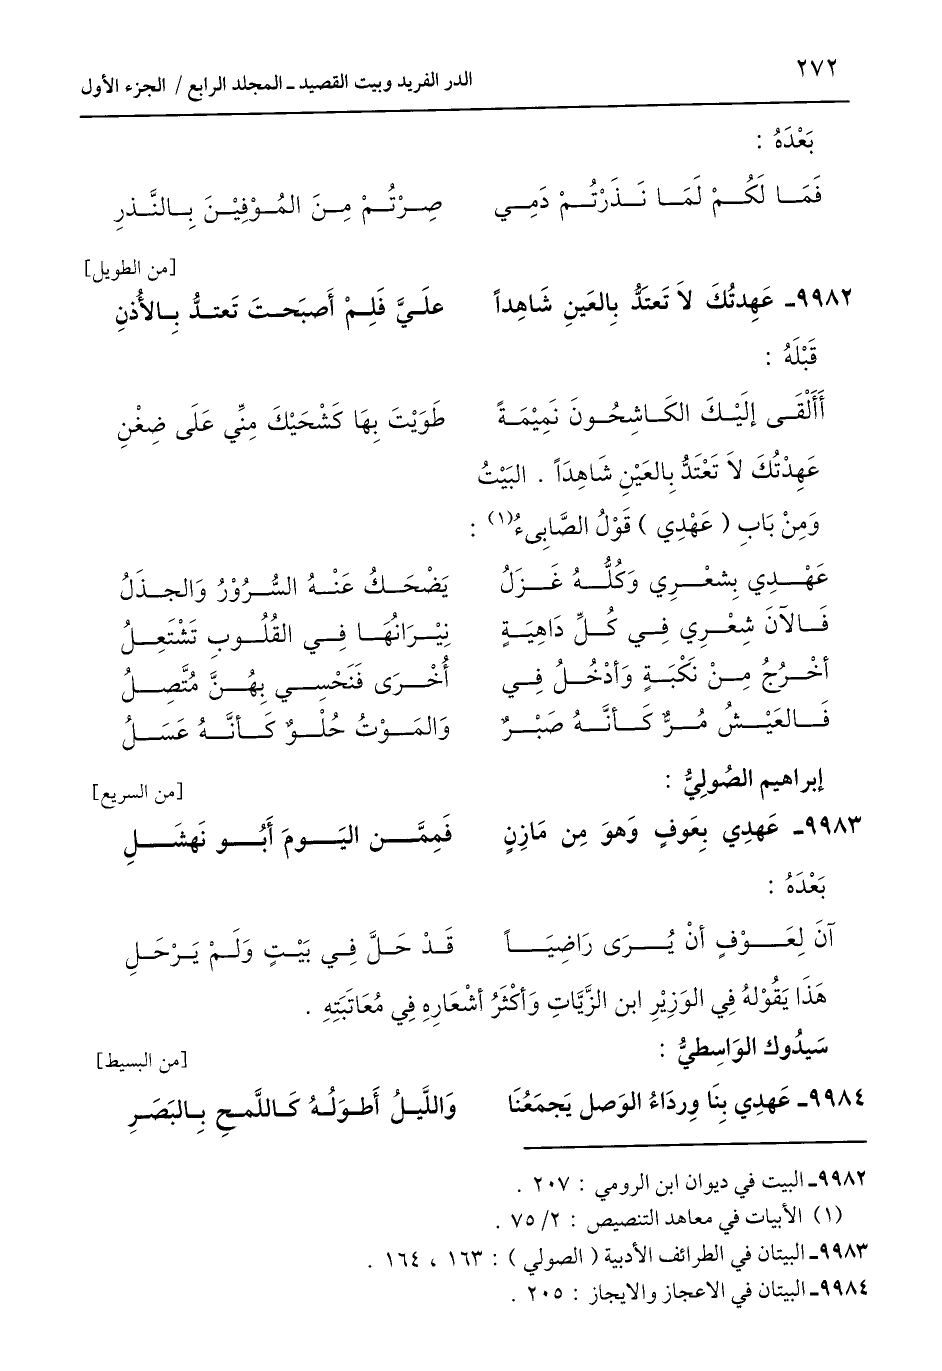 ٢٧٢
الدر الفريد وبيت القصيد ـ المجلد الرابع / الجزء الأول
بَعْدَهُ :
فَمَـا لَكُـمْ لَمَـا نَـذَرْتُـمْ دَمِـي صِـرْتُـمْ مِـنَ المُـوْفِيْـنَ بِـالنَّـذرِ
[من الطويل]
٩٩٨٢ـ عَهِدتُكَ لاَ تَعتَدُّ بِالعَينِ شَاهِداً علَـيَّ فَلِـمْ أَصبَحـتَ تَعتـدُّ بِـالأُذنِ
قَبْلَهُ :
أَأَلْقَـى إِلَيْـكَ الكَـاشِحُـونَ نَمِيْمَـةً طَوَيْتَ بِهَا كَشْحَيْكَ مِنِّي عَلَى ضِغْنِ
عَهِدْتُكَ لاَ تَعْتَدُّ بِالعَيْنِ شَاهِدَاً . البَيْتُ
وَمِنْ بَابِ ( عَهْدِي ) قَوْلُ الصَّابِىءُ(١) :
عَهْـدِي بِشعْـرِي وَكُلُّـهُ غَـزَلُ يَضْحَـكُ عَنْـهُ السُّـرُوْرُ وَالجـذَلُ
فَـالآنَ شِعْـرِي فِـي كُـلِّ دَاهِيَـةٍ نِيْـرَانُهَـا فِـي القُلُـوبِ تَشْتَعِـلُ
أَخْـرُجُ مِـنْ نَكْبَـةٍ وَأَدْخُـلُ فِـي أُخْـرَى فَنَحْسِـي بِهُـنَّ مُتَّصِـلُ
فَـالعَيْـشُ مُـرٌّ كَـأَنَّـهُ صَبْـرٌ وَالمَـوْتُ حُلْـوٌ كَـأنَّـهُ عَسَـلُ
إبراهيم الصُولِيُّ :
[من السريع]
٩٩٨٣ـ عَهدِي بِعَوفٍ وَهوَ مِن مَازِنٍ فَمِمَّـن اليَـومَ أَبُـو نَهشَـلِ
بَعْدَهُ :
آنَ لِعَـوْفٍ أنْ يُـرَى رَاضِيَـاً قَـدْ حَـلَّ فِـي بَيْـتٍ وَلَـمْ يَـرْحَـلِ
هَذَا يَقُوْلهُ فِي الوَزِيْرِ ابن الزَّيَّاتِ وَأكْثَرُ أشْعَارِهِ فِي مُعَاتَبَتِهِ .
سَيدُوك الوَاسِطيُّ :
[من البسيط]
٩٩٨٤ـ عَهدِي بِنَا ورِدَاءُ الوَصل يَجمَعُنَا وَاللَّيلُ أَطـوَلُـهُ كَـاللَّمـحِ بِـالبَصَـرِ
٩٩٨٢ـ البيت في ديوان ابن الرومي : ٢٠٧ .
(١) الأبيات في معاهد التنصيص : ٢/ ٧٥ .
٩٩٨٣ـ البيتان في الطرائف الأدبية ( الصولي ) : ١٦٣ ، ١٦٤ .
٩٩٨٤ـ البيتان في الاعجاز والايجاز : ٢٠٥ .